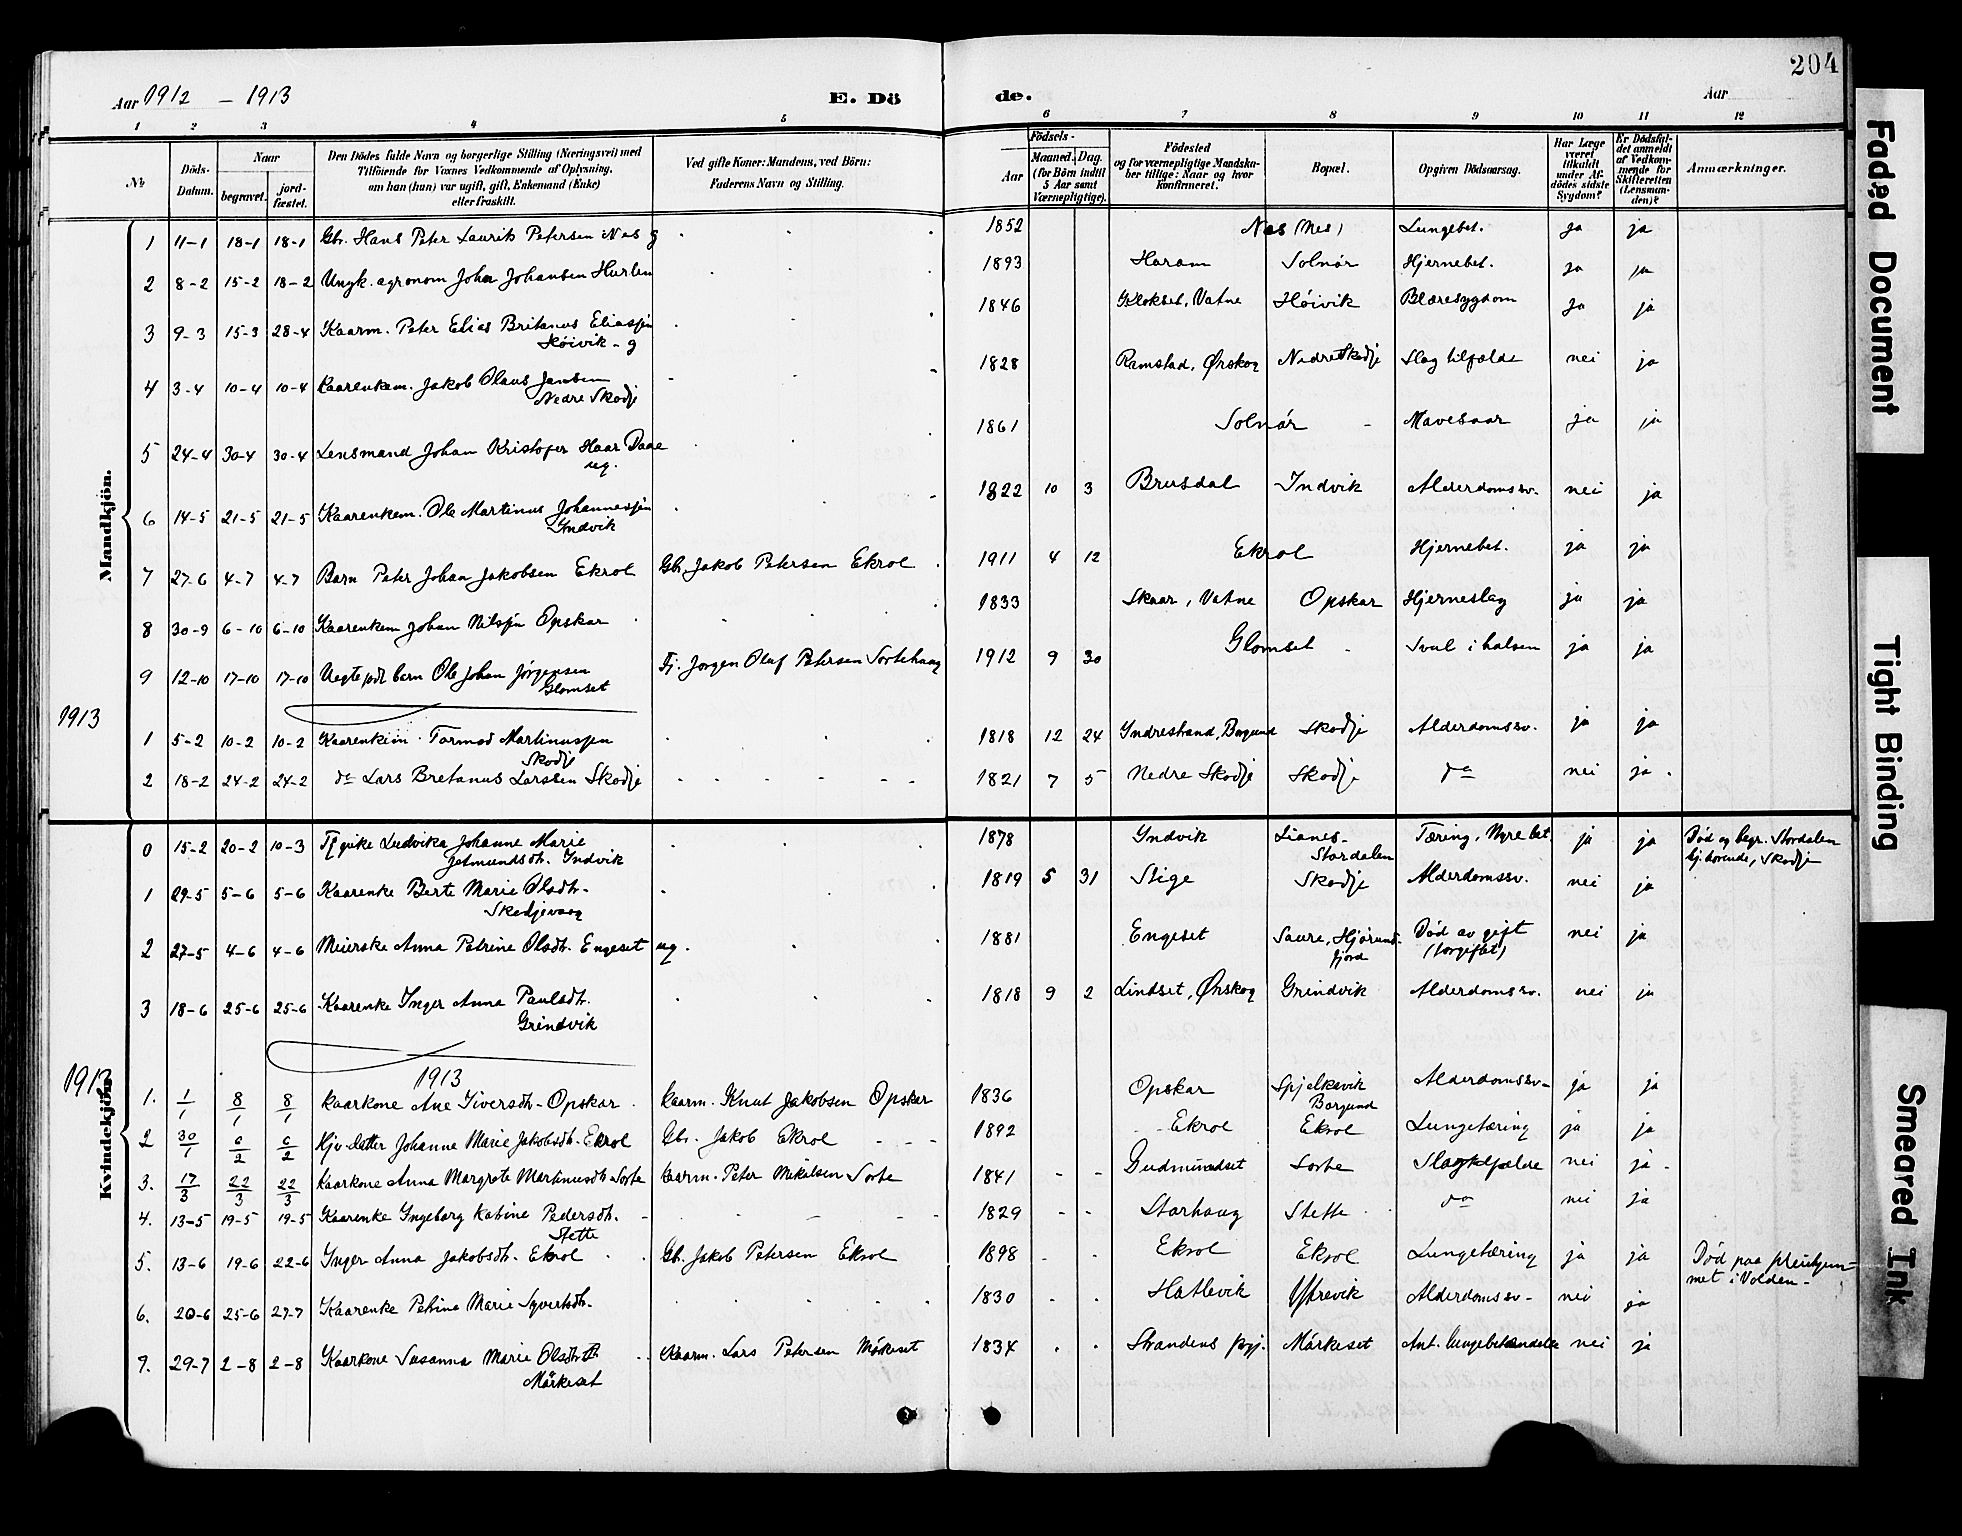 204
Aar 1912 - 1913 E. Döde. Aar
1 2 3 4 5 6 7 8 9 10 11 12
№ Döds-Datum. Naar begravet. jord-fæstet. Den Dödes fulde Navn og borgerlige Stilling (Næringsvei) med Tilföiende for Voxnes Vedkommende af Oplysning, om han (hun) var ugift, gift, Enkemand (Enke) eller fraskilt. Ved gifte Koner: Mandens, ved Börn: Faderens Navn og Stilling. Aar Födsels- Maaned. Dag. (for Börn indtil 5 Aar samt Værnepligtige). Födested og for værnepligtige Mandskaber tillige: Naar og hvor Konfirmeret. Bopæl. Opgiven Dödsaarsag. Har Læge været tilkaldt under Afdödes sidste Sygdom? Er Dödsfaldet anmeldt af Vedkommende for Skifteretten (Lensmanden)? Anmærkninger.
Mandkjön.
1 11-1 18-1 18-1 Gbr. Hans Peter Laurits Petersen Nes g 1852 Nes (Nes) Lungebet. ja ja
2 8-2 15-2 18-2 Ungk. agronom Johan Johansen Hurlen 1893 Haram Solnör Hjernebet. ja ja
3 9-3 15-3 28-4 Kaarm. Peter Elias Britanus Eliassen Höivik - g 1846 Klokset, Vatne Höivik Blæresygdom ja ja
4 3-4 10-4 10-4 Kaarenkem. Jakob Olaus Jensen Nedre Skodje 1828 Ramstad, Ørskog Nedre Skodje Slagtilfælde nei ja
5 24-4 30-4 30-4 Lensmand Johan Kristofer Haar Daae ug. 1861 Solnör - Mavesaar ja ja
6 14-5 21-5 21-5 Kaarenkem. Ole Martinus Johannessen Indvik 1822 10 3 Brusdal Indvik Alderdomssv. nei ja
7 27-6 4-7 4-7 Barn Peter Johan Jakobsen Ekrol Gbr. Jakob Petersen Ekrol 1911 4 12 Ekrol Hjernebet. ja ja
8 30-9 6-10 6-10 Kaarenkem Johan Nilssen Opskar 1833 Skaar, Vatne Opskar Hjerneslag ja ja
9 12-10 17-10 17-10 Uegte född barn Ole Johan Jørgensen Glomset Fj. Jørgen Oluf Petersen Sortehaug 1912 9 30 Glomset - Svul i halsen ja ja
1913
1 5-2 10-2 10-2 Kaarenkem. Tormod Martinussen Skodje 1818 12 24 Yndrestrand, Borgund Skodje Alderdomssv. ja ja
2 18-2 24-2 24-2 do Lars Bretanus Larssen Skodje 1821 7 5 Nedre Skodje Skodje do nei ja.
Kvindekjön.
0 15-2 20-2 10-3 Ludvika Johanne Marie Jetmundsdtr. Indvik 1878 Yndvik Lianes - Stordalen Tæring, Nyrebet. ja ja Död og begr. Stordalen hj.hörende, Skodje
1 29-5 5-6 5-6 Kaarenke Berte Marie Olsdtr. Skodjevaag 1819 5 31 Stige Skodje Alderdomssv. nei ja
2 27-5 4-6 4-6 Meierske Anna Petrine Olsdtr. Engeset ug. 1881 Engeset Saure, Hjørundfjord Död av gift (forgiftet) nei ja
3 18-6 25-6 25-6 Kaarenke Inger Anna Paulsdtr. Grindvik 1818 9 2 Lindset, Ørskog Grindvik Alderdomssv. nei ja
1913
1913
1. 1/1 8/1 8/1 Kaarkone Ane Iversdtr - Opskar Kaarm. Knut Jakobsen Opskar 1836 Opskar Spjelkavik Borgund Alderdomssv - ja ja
2 30/1 6/2 6/2 Hjv. datter Johanne Marie Jakobsdtr. Ekrol Gbr. Jakob Ekrol 1892 Ekrol Ekrol Lungetæring ja ja
3. 17/3 22/3 22/3 Kaarkone Anna Margrete Martinusdtr Sorte Kaarm. Peter Mikalsen Sorte 1841 Gudmundset Sorte Slagtilfælde nei ja -
4. 13-5 19-5 19-5 Kaarenke Ingeborg Katrine Pedersdtr. Stette 1829 Storhaug Stette do nei ja
5. 13-6 19-6 22-6 Inger Anna Jakobsdtr. Ekrol Gb. Jakob Petersen Ekrol 1898 Ekrol Ekrol Lungetæring ja ja Död paa pleiehjemmet i Volden -
6. 20-6 25-6 27-7 Kaarenke Petrine Marie Syvertsdtr. 1830 Hatlevik Ytrevik Alderdomssv - nei ja
9. 29-7 2-8 2-8 Kaarkone Susanna Marie Olsdtr. Mörkeset Kaarm. Lars Petersen Mörkeset 1834 Strandens pgj. Mörkeset Ant. lungebetændelse nei ja
Faded Document
Tight Binding
Smeared Ink